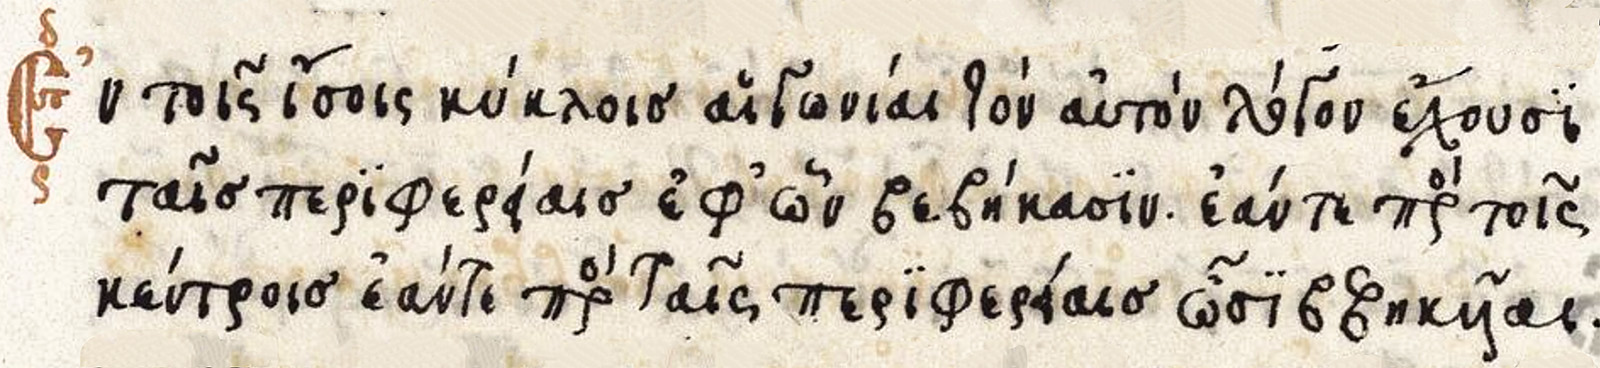 Ἐν τοῖς ἴσοις κύκλοισ αἱ γωνίαι τὸν αὐτὸν λόγον ἔχουσϊ
ταῖσ περϊφερείαισ ἐφ᾽ ὧν βεβήκασϊν. ἐάν τε πρὸς τοῖς
κέντροισ ἐάν τε πρὸς ταῖς περϊφερείαισ ὦσϊ βεβηκῆαι.